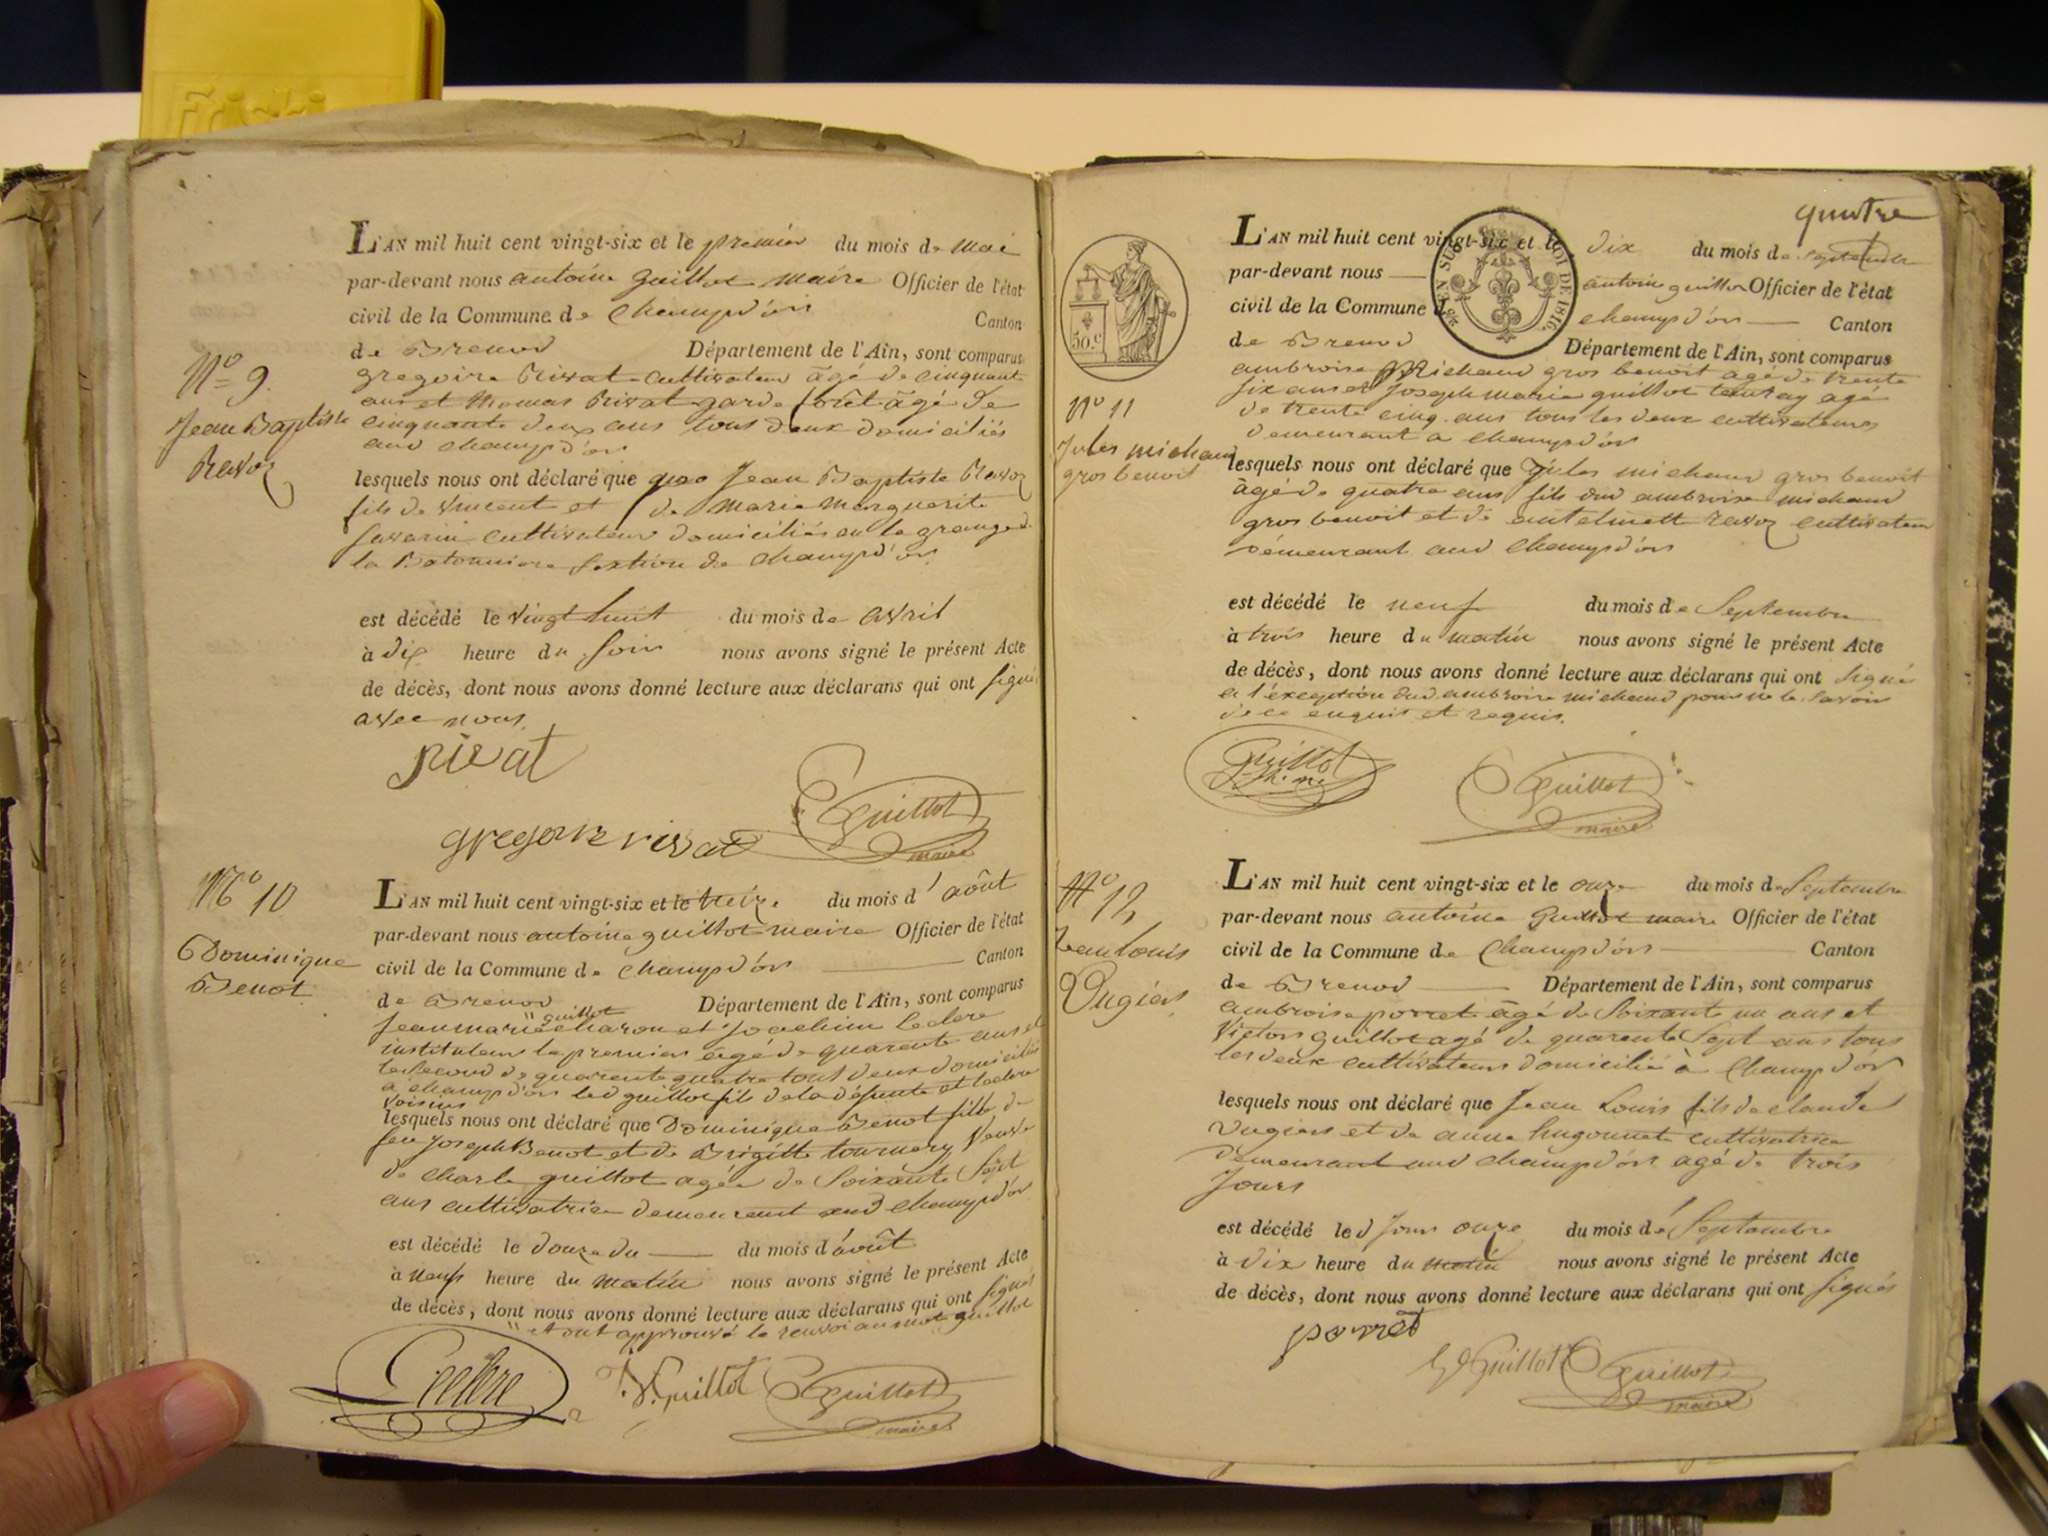 Nº 9.
Jean Baptiste
Ravoz
L'AN mil huit cent vingt-six et le premier du mois de mai
par-devant nous antoine guillot maire Officier de l'état
civil de la Commune de Champd'or Canton
de Brenod Département de l'Ain, sont comparus
gregoire Rivat cultivateur âgé de cinquant
ans et thomas Rivat garde forêt âgé de
cinquante deux ans tous deux domiciliés
aud champd'or
lesquels nous ont déclaré que Jean Baptiste Ravoz
fils de Vincent et de marie marguerite
savarin cultivateur domiciliés en la grange de
la section de champd'or
est décédé le vingt huit du mois de avril
à dix heure du soir nous avons signé le présent Acte
de décès, dont nous avons donné lecture aux déclarans qui ont signé
avec nous.
rivat
gregoire rivat
Guillot
maire
Nº 10
Dominique
Benot
L'AN mil huit cent vingt-six et le treize du mois d'août
par-devant nous antoine guillot maire Officier de l'état
civil de la Commune de Champd'or Canton
de Brenod Département de l'Ain, sont comparus
guillot
jean marie charon et joachim leclere
instituteur le premier âgé de quarante ans et
le second de quarente quatre tout deux domiciliés
à champd'or led guillot fils de la défunte et leclere
voisins
lesquels nous ont déclaré que Dominique Benot fille de
feu joseph Benot et de Brigitte tournery Veuve
de charle guillot agée de Soixante Sept
ans cultivatrice demeurant aud champd'or
est décédé le douze du du mois d'août
à neuf heure du matin nous avons signé le présent Acte
de décès, dont nous avons donné lecture aux déclarans qui ont signé
" et ont approuvé le renvoi au mot guillot
Leclere
Guillot
Guillot
maire
quatre
50.c
EN SUS
ROI DE 1816.
Nº 11
Jules michaud
gros benoit
L'AN mil huit cent vingt-six et le dix du mois de septembre
par-devant nous antoine guillot Officier de l'état
civil de la Commune champd'or Canton
de Brenod Département de l'Ain, sont comparus
ambroise Michaud gros benoit âgé de trente
six ans et Joseph marie guillot agé
de trente cinq ans tous les deux cultivateurs
demeurant a champd'or
lesquels nous ont déclaré que Jules michaud gros benoit
âgé de quatre ans fils dud ambroise michaud
gros benoit et de antelmett ravoz cultivateur
demeurant aud champd'or
est décédé le neuf du mois de Septembre
à trois heure du matin nous avons signé le présent Acte
de décès, dont nous avons donné lecture aux déclarans qui ont signé
a l'exception dud ambroise michaud pour ne le savoir
de ce enquis et requis.
Guillot
Guillot
maire
Nº 12
Jean louis
Vugiers
L'AN mil huit cent vingt-six et le onze du mois de Septembre
par-devant nous antoine guillot maire Officier de l'état
civil de la Commune de Champd'or Canton
de Brenod Département de l'Ain, sont comparus
ambroise porret âgé de Soixante un ans et
Victor guillot agé de quarente Sept ans tous
les deux cultivateurs domicilié à Champd'or
lesquels nous ont déclaré que Jean Louis fils de claude
Vugiers et de anne hugonnet cultivatrice
demeurant aud champd'or agé de trois
Jours
est décédé le d jour onze du mois de Septembre
à dix heure du matin nous avons signé le présent Acte
de décès, dont nous avons donné lecture aux déclarans qui ont signés
porret
Guillot
Guillot
maire